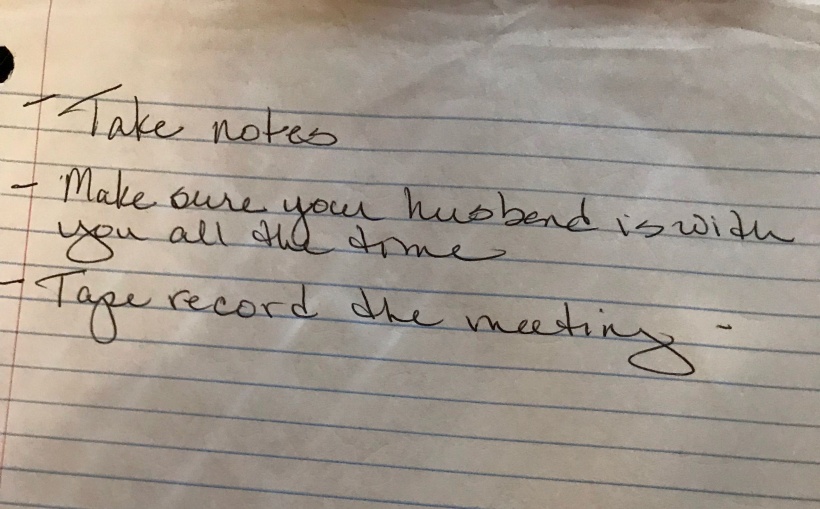 - Take notes
- Make sure your husband is with
you all the time
- Tape record the meeting -